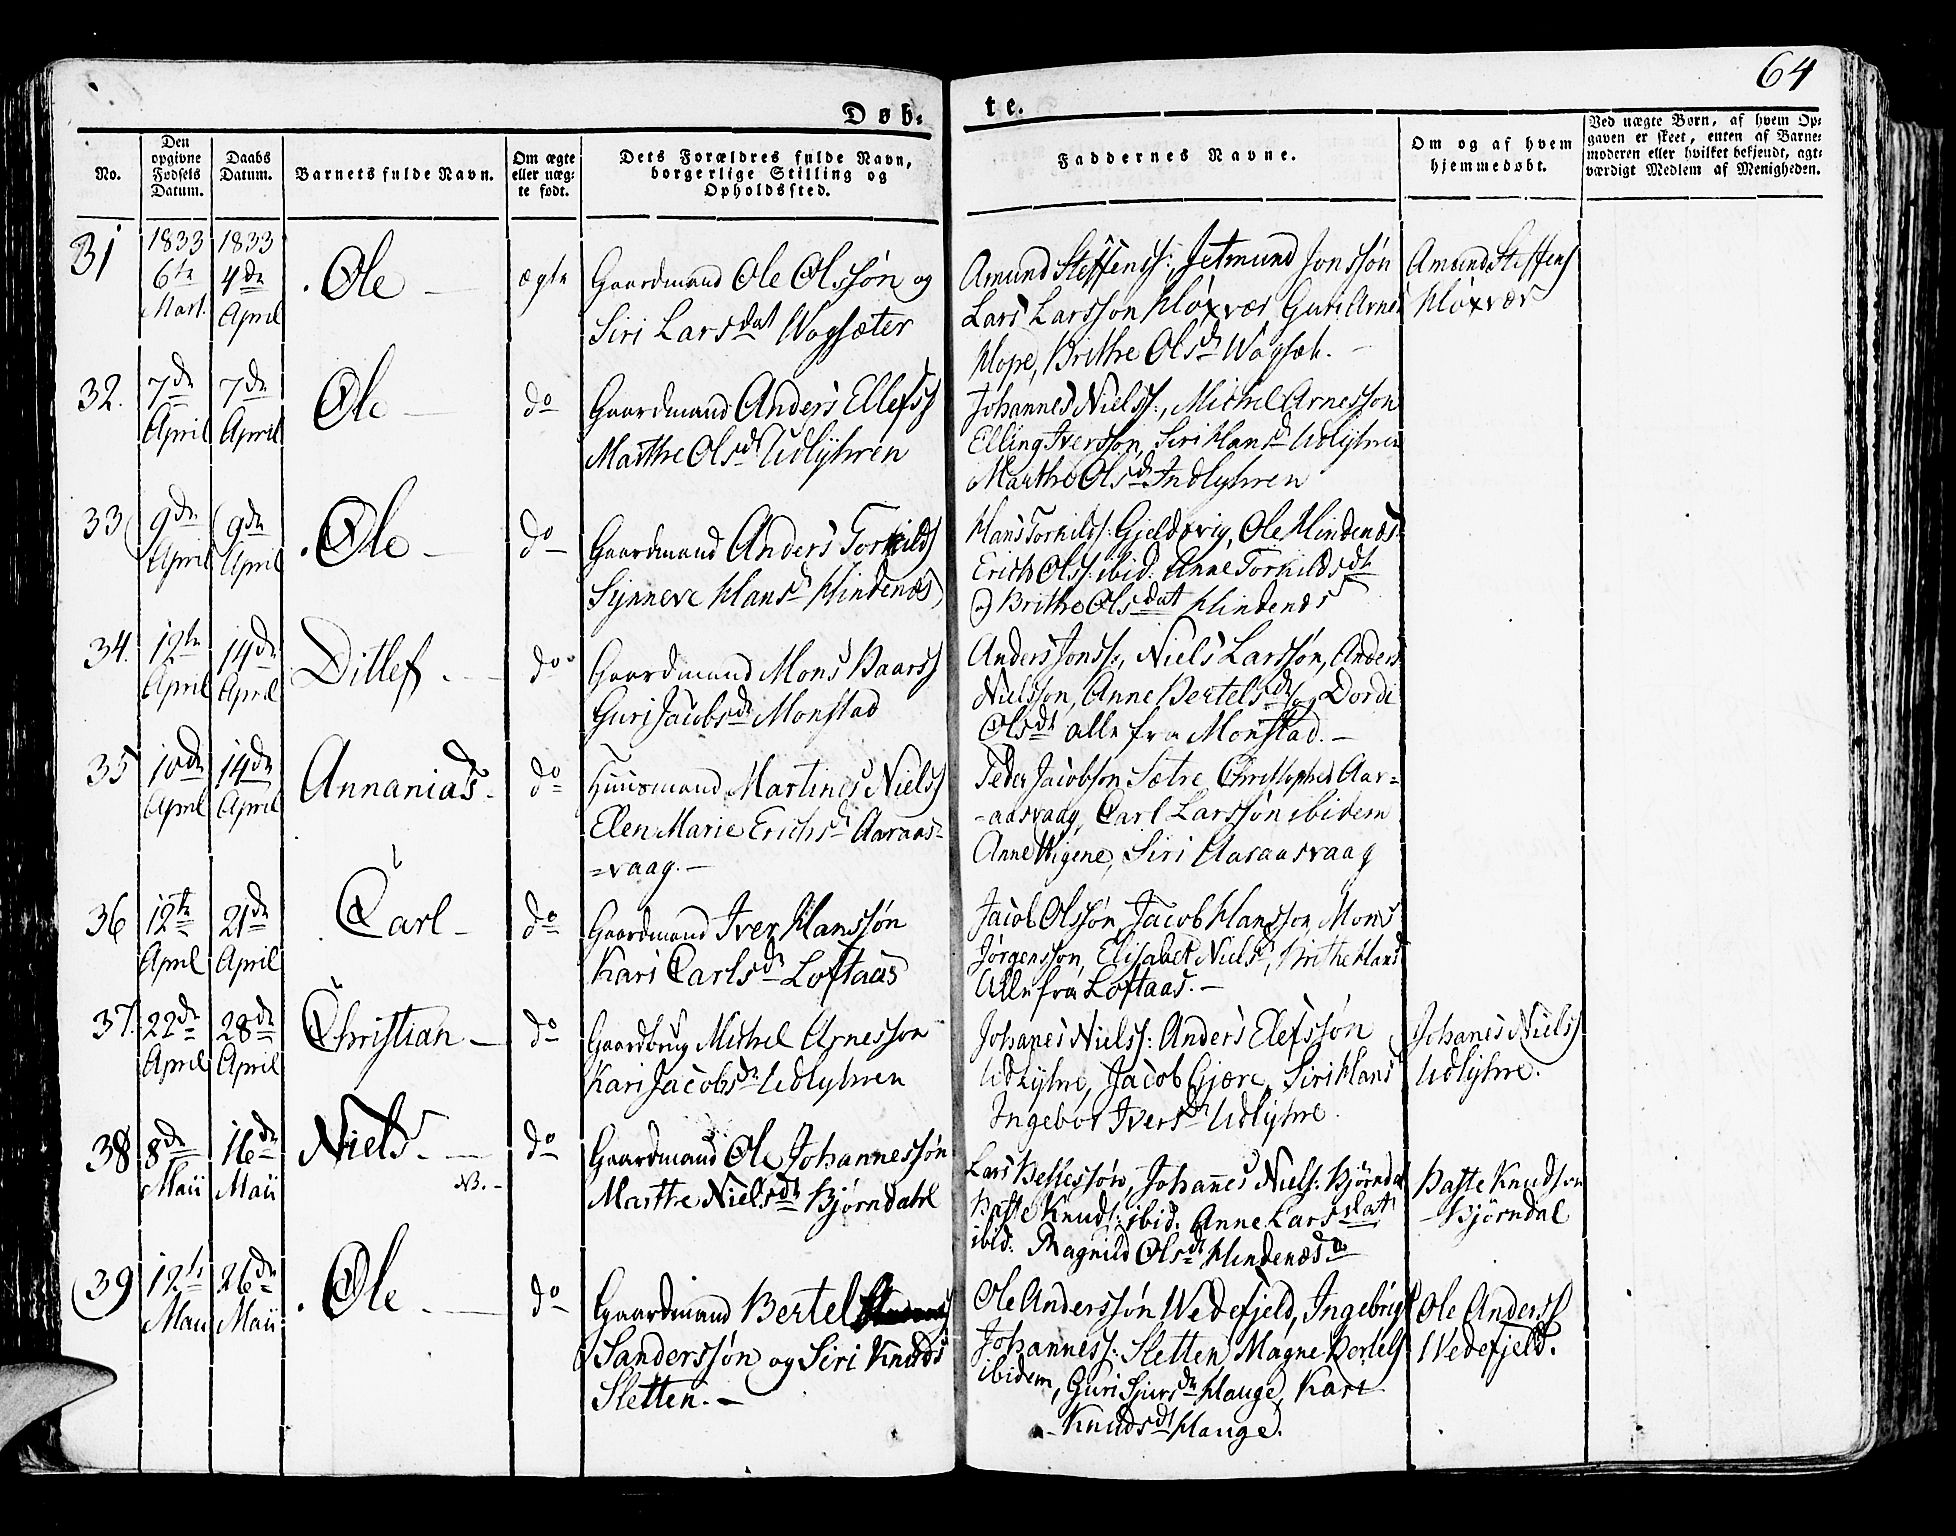 64
Døb- te.
No.
Den opgivne Fødsels Datum.
Daabs Datum.
Barnets fulde Navn.
Om ægte eller uægte født.
Dets Forældres fulde Navn, borgerlige Stilling og Opholdssted.
Faddernes Navne.
Om og af hvem hjemmedøbt.
Ved uægte Børn, af hvem Opgaven er skeet, enten af Barnemoderen eller hvilket bekjendt, agtværdigt Medlem af Menigheden.
31 1833 6te Mart. 1833 4de April Ole ægte
Gaardmand Ole Olssøn og
Siri Larsdat Wogsæter
Amund Steffenss:, Jetmund Jonssøn
Lars Larsson Kløxvær Guri Arnes
Hope, Brithe Olsdt Wogsæt.
Amund Steffens
Kløxvær
32. 7de April 7de April Ole do
Gaardmand Anders Ellefss
Marthe Olsdt Udlyhren
Johannes Nielss:, Michel Arnesson
Elling Iversson, Siri Hansd Udlyhren
Marthe Olsd Indlyhren
33 9de April 9de April Ole do
Gaardmand Anders Torkilds
Synneve Hansd Hindenæs
Hans Torkilds: Gjeldvig, Ole Hindenæs
Erich Olss: ibid: Anne Torkildsdt
og Brithe Olsdat Hindenæs
34. 12te April 14de April Ditlef do
Gaardmand Mons Baarss
Guri Jacobsdt Monstad
Anders Jonss:, Niels Larssøn, Anders
Nielsson, Anne Bertelsd og Dordi
Olsdt alle fra Monstad.
35 10de April 14de April Annanias do
Huusmand Martines Nielss
Elen Marie Erichsd Aaraas-
=vaag.
Peder Jacobson Sætre Christopher Aar=
-aasvaag, Carl Larssøn ibidem
Anne Wigene, Siri Aaraasvaag
36 12te April 21de April Carl do
Gaardmand Iver Hanssøn
Kari Carlsdt Loftaas
Jacob Olssøn, Jacob Hansson, Mons
Jørgensson, Elisabet Nielsd, Brithe Hansd
Alle fra Loftaas.
37. 22de April 28de April Christian do
Gaardbrug Michel Arnesson
Kari Jacobsdt Udlyhren
Johanes Nielss: Anders Elefssøn
Udlyhre, Jacob Gjære, Siri Hansd
Ingebor Iversdt Udlyhre.
Johanes Nielss
Udlyhre.
38 8de Maii 16de Maii Niels NB. do
Gaardmand Ole Johannessøn
Marthe Nielsdt Bjørndahl
Lars Bessessøn, Johannes Niels: Bjørndal
Basse Knuds: ibid. Anne Larsdat
ibid. Magnild Olsdt Hindenæs
Basse Knudson
Bjørndal
39 12te Maii 26de Maii Ole do
Gaardmand Bertel
Sanderssøn og Siri Knudsd
Sletten.
Ole Anderssøn Wedefjeld, Ingebrigt
Johanness: Sletten, Magne Bertels
ibidem, Guri Sjursdt Hauge, Kari
Knudsdt Hauge.
Ole Anderss
Wedefjeld.